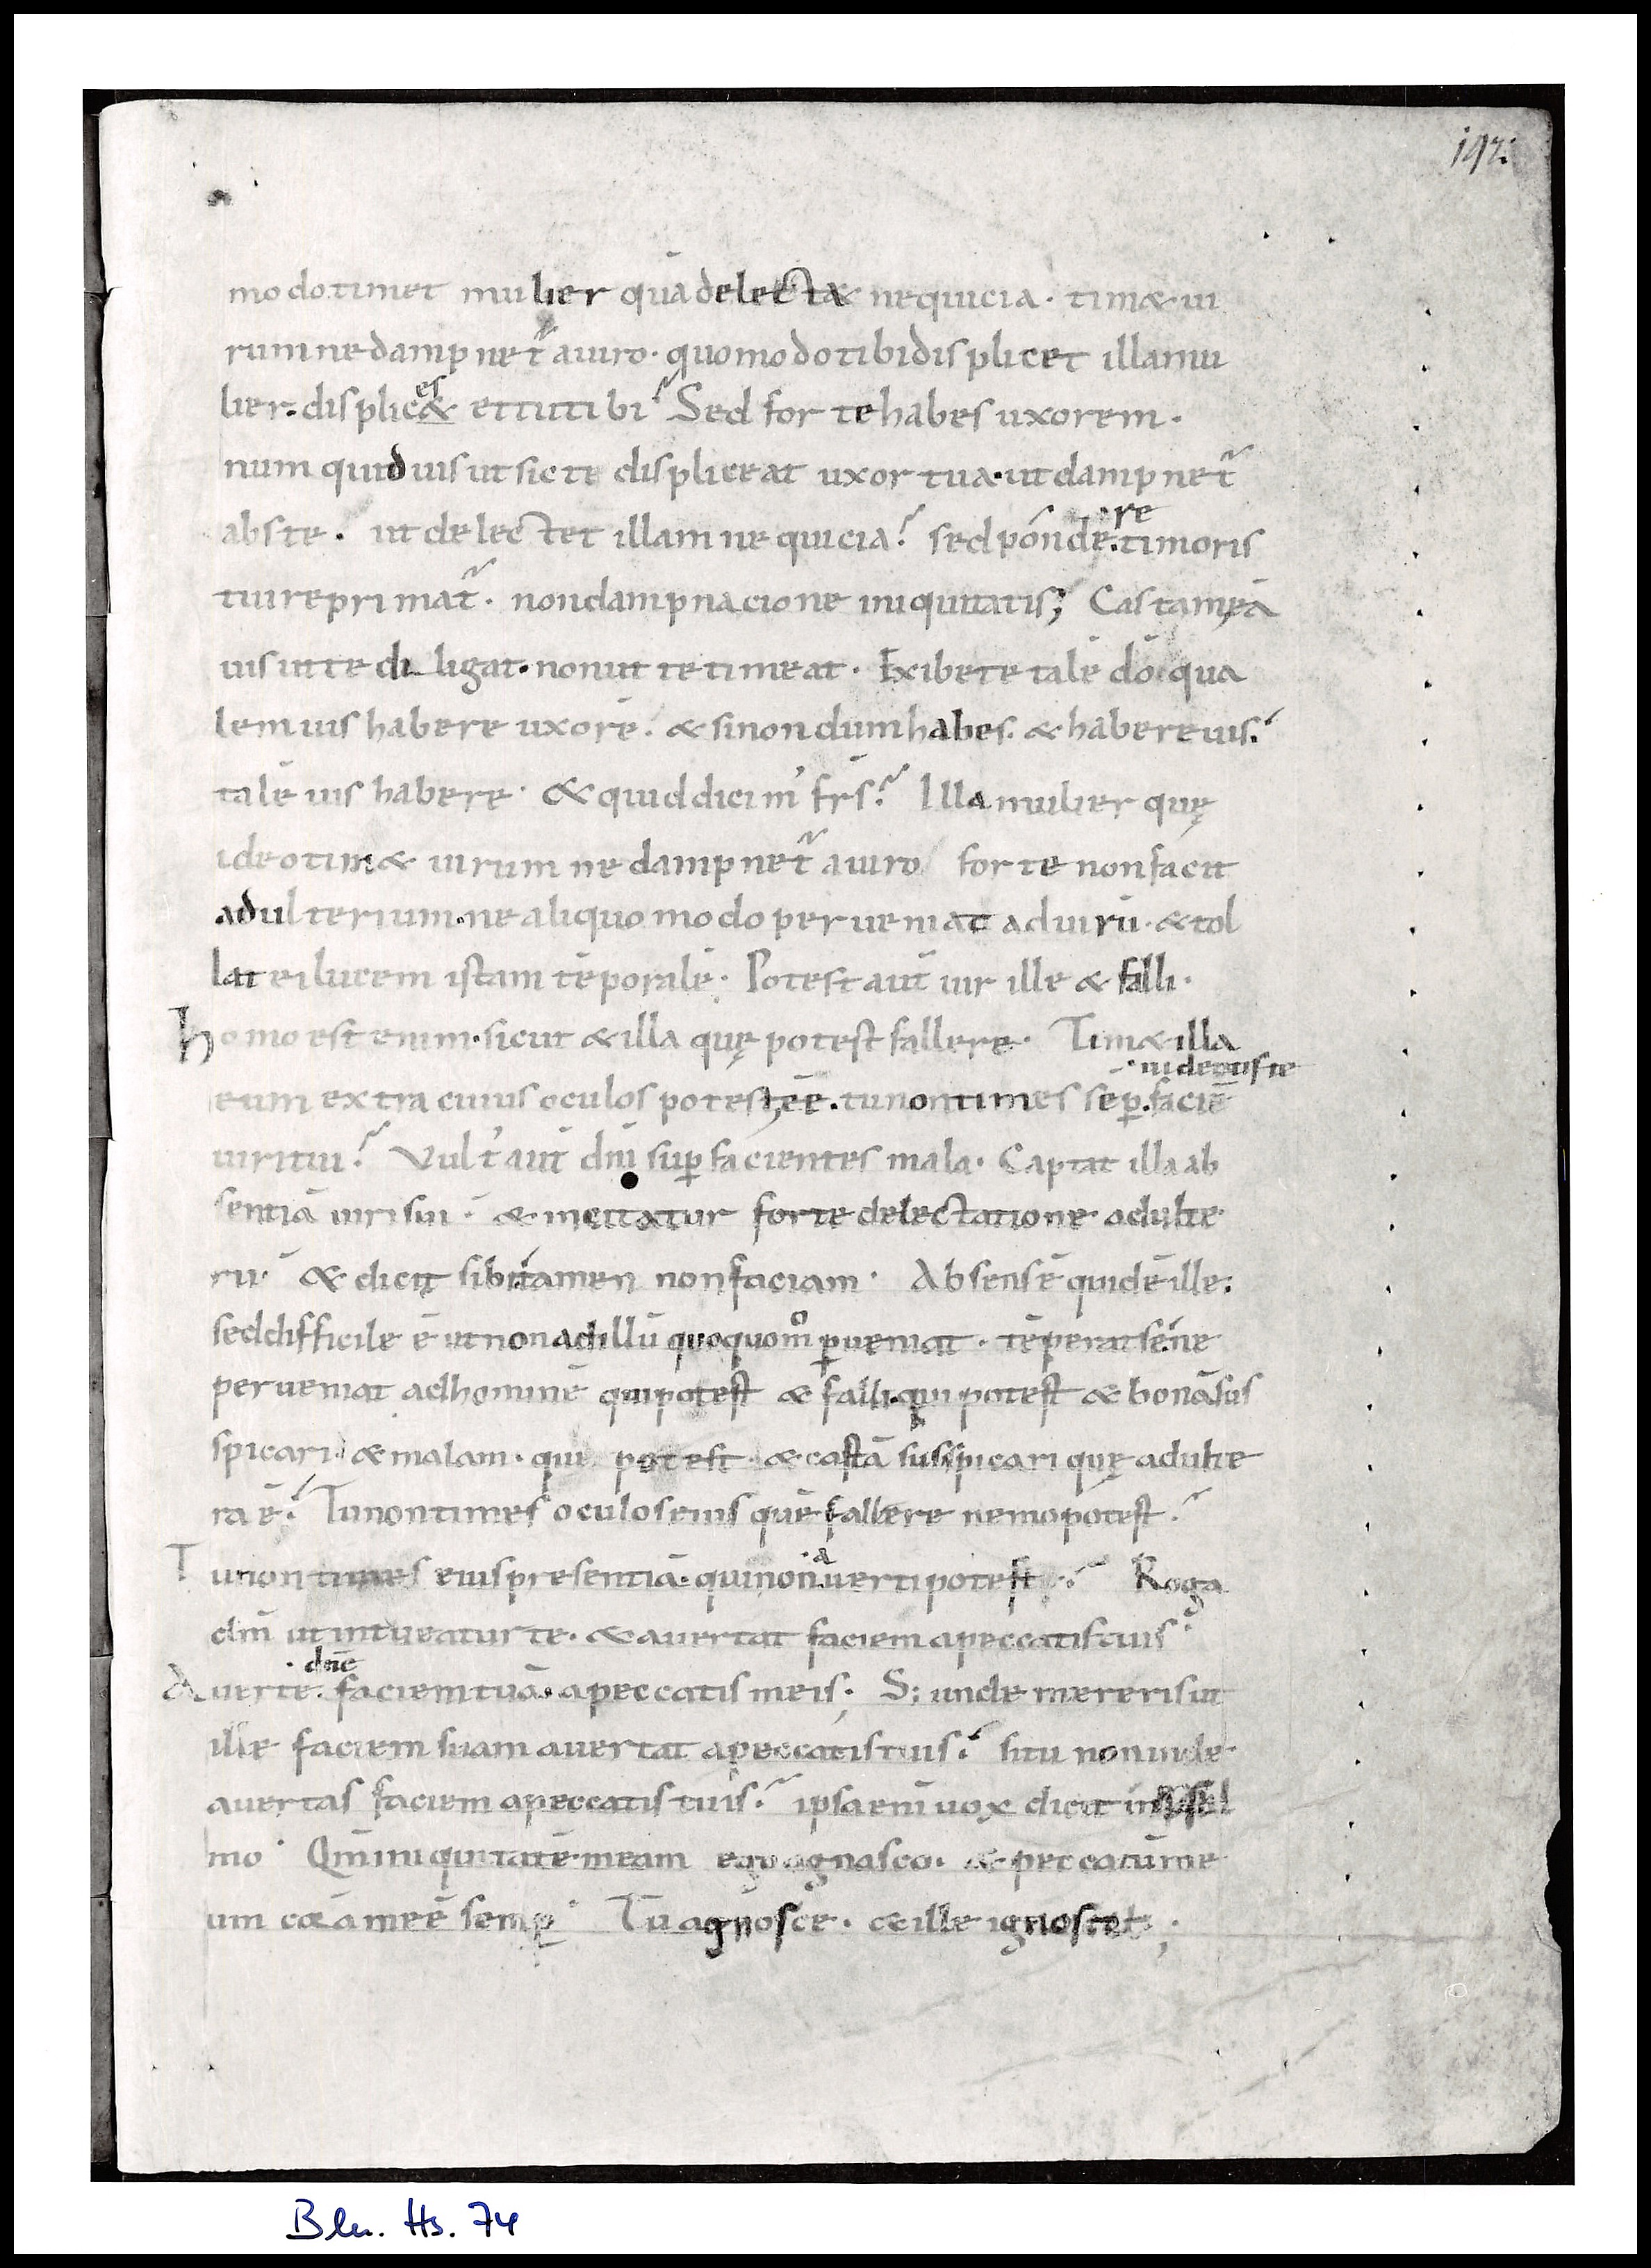 192.
modo timet mulier quā delectat nequicia. tim& ui
rum ne dampnet̃ a uiro. quomodo tibi displicet illa mu
lier. displic&
es
et tu tibi? Sed forte habes uxorem.
num quid uis ut sic te displiceat uxor tua. ut dampnet̃
abs te. ut delectet illam nequicia? sed pondere timoris
re
tui reprimat̃. non dampnacione iniquitatis; Casta mea
uis ut te diligat. non ut te timeat. Exibe te talē dō qua
lem uis habere uxorē. & si nondum habes. & habere uis?
talē uis habere. & quid dicim' frs̃? Illa mulier quę
ideo tim& uirum ne dampnet̃ a uiro / forte non facit
adulterium. ne aliquo modo perueniat ad uirū. & tol
lat ei lucem istam tēporalē. Potest aut̄ uir ille & falli.
homo est enim. sicut & illa quę potest fallere. Tim& illa
uidentis te
eum extra cuius oculos potest eē. tu non times sep̱. faciē
uiri tui? Vult' aut̄ dn̄i sup̱ facientes mala. Captat illa ab
sentiā uiri sui. & incitatur forte delectatione adulte
rii. & dicit sibi tamen non faciam. Absens ē quidē ille.
sed difficile ē ut non ad illū quoquomo p̱ueniat. tēperat se. ne
perueniat ad hominē qui potest & falli. qui potest & bonā sus
spicari. & malam. qui potest & castā susspicari quę adulte
ra ē? Tu non times oculos eius quē fallere nemo potest?
Tu non times eius presentiā. qui non uerti potest? Roga
a
dn̄i ut intueatur te. & auertat faciem a peccatis tuis.
dn̄e
Auerte. faciem tuā. a peccatis meis; S; unde mereris ut
ille faciem suam auertat a peccatis tuis? si tu non inde
auertas faciem a peccatis tuis? ipsa eni uox dicit in psal
mo. Qm̄ iniquitatē meam ego agnosco. & peccatū me
um corā me ē semp̱. Tu agnosce. & ille ignoscet;
Bln. Hs. 74